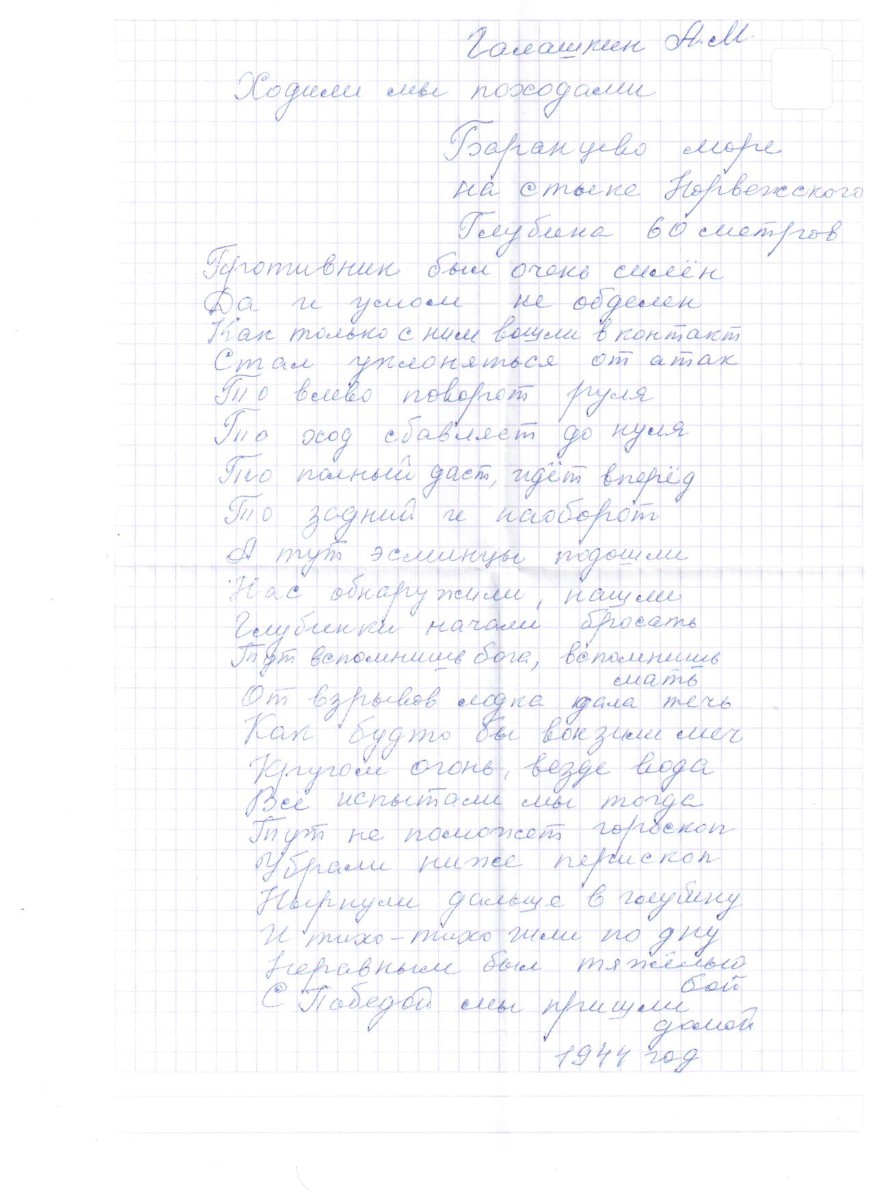 Галашкин А.М.
Ходили мы походами
Баранцево море
на стыке Норвежского
Глубина 60 метров
Противник был очень силён
Да и умом не обделен
Как только с ним вошли в контакт
Стал уклоняться от атак
То влево поворот руля
То ход сбавляет до нуля
То полный даст, идёт вперёд
То задний и наоборот
А тут эсминцы подошли
Нас обнаружили, нашли
Глубинки начали бросать
Тут вспомнишь бога, вспомнишь
мать
От взрывов лодка дала течь
Как будто бы вонзили меч
Кругом огонь, везде вода
Всё испытали мы тогда
Тут не поможет гороскоп
Убрали ниже перископ
Нырнули дальше в голубину
И тихо-тихо шли по дну
Неравным был тяжёлый
бой
С Победой мы пришли
домой
1944 год